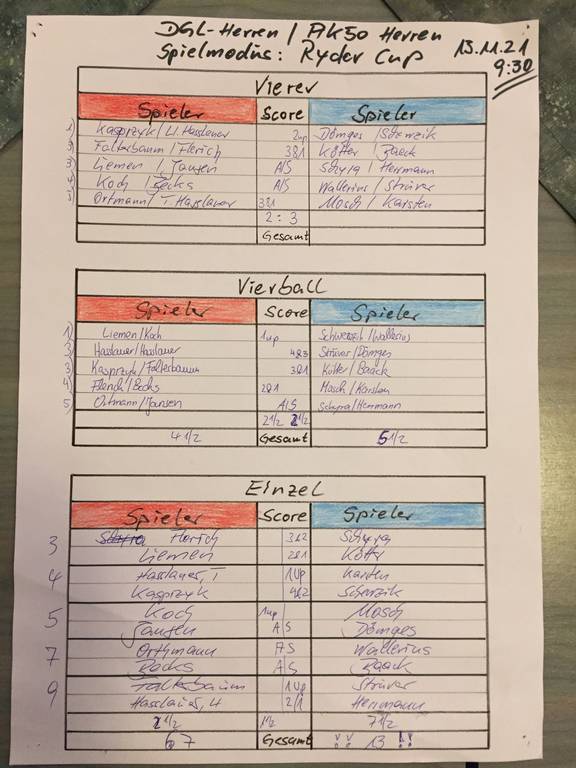 DGL-Herren / AK50 Herren
Spielmodus: Ryder Cup
13.11.21
9:30
Vierer
Spieler Score Spieler
1) Kasprzyk/U. Hasslauer 2up Dömges /Scherzik
2) Falterbaum /Flerich 3&1 Kötter / Baack
3) Liemen / Jansen A/S Schyra / Herrmann
4) Koch / Becks A/S Wallerius / Strüver
5) Ortmann/ T. Hasslauer 3&1 Mosch / Karsten
2 : 3
Gesamt
Vierball
Spieler Score Spieler
1) Liemen/Koch 1up /Wallerius
2) Hasslauer/Hasslauer 4&3 Strüver /Dömges
3) Kasprzyk /Falterbaum 3&1 Kötter / Baack
4) Flerich /Becks 2&1 Mosch / Karsten
5) Ortmann/Jansen A/S Schyra/Herrmann
2 1/2 2 1/2
4 1/2 Gesamt 5 1/2
Einzel
Spieler Score Spieler
3 Flerich 3&2 Schyra
Liemen 2&1 Kötter
4 Hasslauer, T 1up Karsten
Kasprzyk 4&2 Scherzik
5 Koch 1up Mosch
Jansen A S Dömges
7 Orthmann A S Wallerius
Becks A S Baack
9 Falterbaum 1up Strüver
Hasslauer, U 2/1 Herrmann
2 1/2 7 1/2
Gesamt !! 13 !!